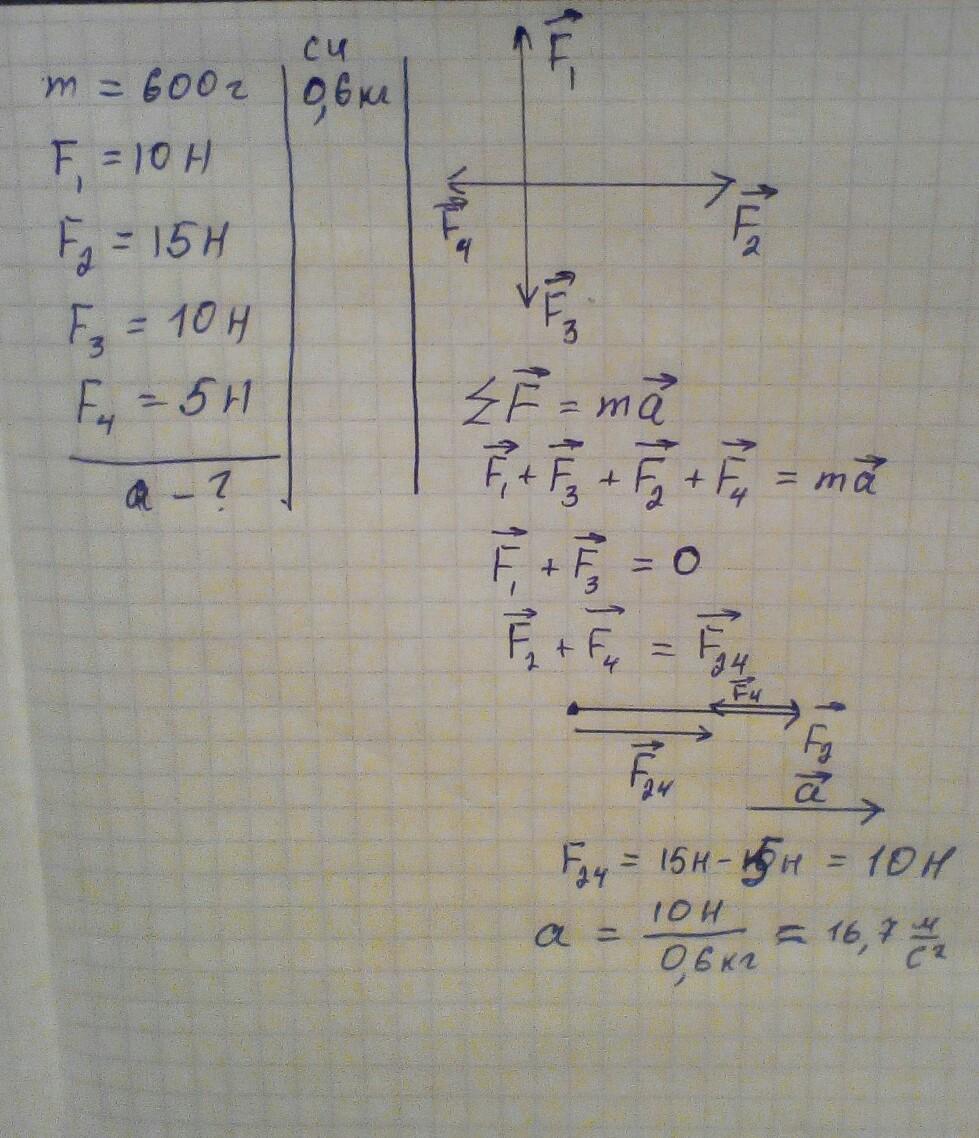 СИ
m = 600г
0,6кг
F₁ = 10 Н
F₂ = 15 Н
F₃ = 10 Н
F₄ = 5 Н
a - ?
F⃗₁
F⃗₄
F⃗₂
F⃗₃
∑F⃗ = ma⃗
F⃗₁ + F⃗₃ + F⃗₂ + F⃗₄ = ma⃗
F⃗₁ + F⃗₃ = 0
F⃗₂ + F⃗₄ = F⃗₂₄
F⃗₄
F⃗₂
F⃗₂₄
a⃗
F₂₄ = 15Н - 5Н = 10 Н
a = 10 Н / 0,6 кг = 16,7 м/с²